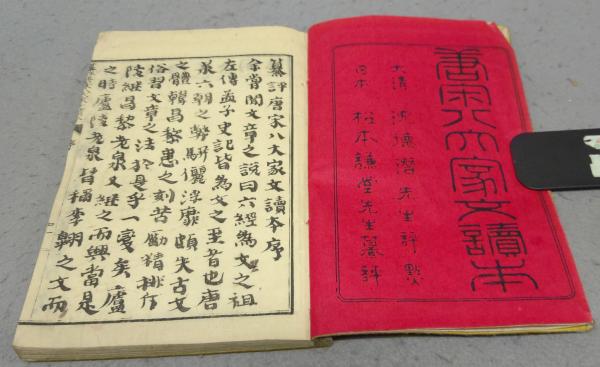 唐宋八大家文讀本
大清 沈德潛先生評點
日本 松本謙堂先生纂評
纂評唐宋八大家文讀本序
余嘗聞文章之說曰六經為文之祖
左傳孟子史記皆為文之至者也唐
承六朝之弊駢儷浮靡頗失古文
之體韓昌黎患之刻苦勵精排斥
俗習文章之法於是乎一變矣廬
陵繼昌黎老泉又繼之而興當是
之時廬陵老泉皆稱李翺之文而